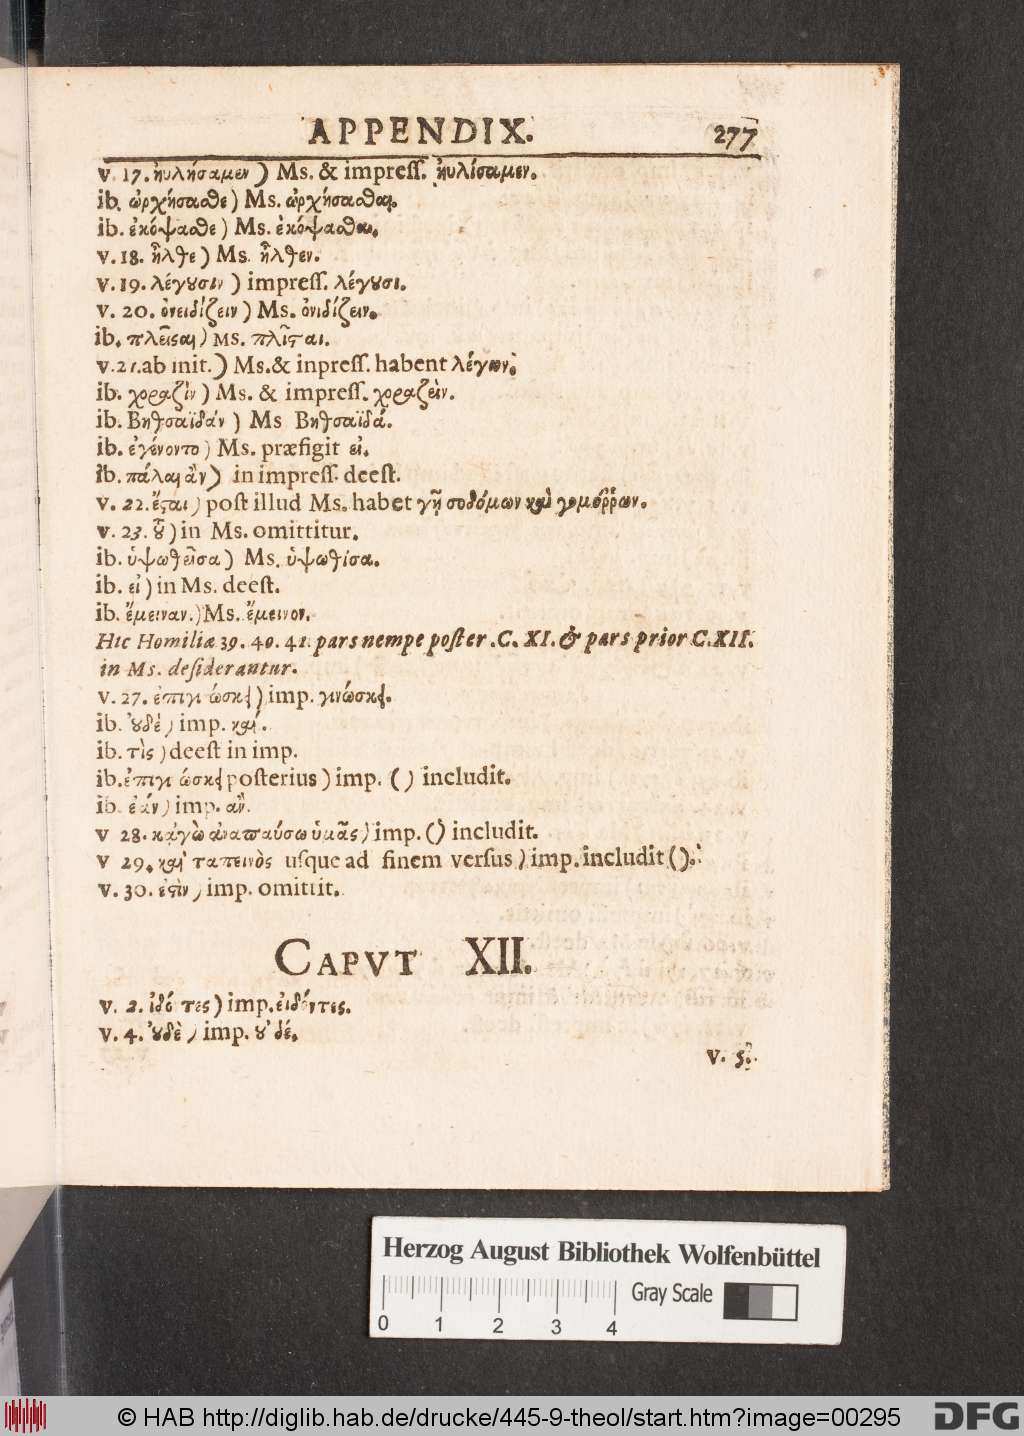 APPENDIX. 277
v. 17. ηὐλήσαμεν) Ms. & impress. ηὐλίσαμεν.
ib. ὠρχήσασθε) Ms. ὠρχήσασθαι.
ib. ἐκόψασθε) Ms. ἐκόψασθαι.
v. 18. ἦλθε) Ms. ἦλθεν.
v. 19. λέγουσιν) impress. λέγουσι.
v. 20. ὀνειδίζειν) Ms. ὀνιδίζειν.
ib. πλεῖςαι) Ms. πλῖςαι.
v. 21. ab init.) Ms. & inpress. habent λέγων.
ib. χοραζὶν) Ms. & impress. χοραζεὶν.
ib. Βηθσαϊδάν) Ms Βηθσαϊδά.
ib. ἐγένοντο) Ms. præfigit εἰ.
ib. πάλαι ἂν) in impress. deest.
v. 22. ἔςαι) post illud Ms. habet γῇ σοδόμων καὶ γομόῤῥων.
v. 23. ἡ) in Ms. omittitur.
ib. ὑψωθεῖσα) Ms. ὑψωθίσα.
ib. εἰ) in Ms. deest.
ib. ἔμειναν.) Ms. ἔμεινον.
Hic Homiliæ 39. 40. 41. pars nempe poster. C. XI. & pars prior C. XII.
in Ms. desiderantur.
v. 27. ἐπιγι ώσκει) imp. γινώσκει.
ib. ȣ̓δὲ) imp. καί.
ib. τὶς) deest in imp.
ib. ἐπιγι ώσκει posterius) imp. () includit.
ib. ἐάν) imp. ἂν.
v 28. κἀγὼ ἀναπαύσω ὑμᾶς) imp. () includit.
v 29. καὶ ταπεινὸς usque ad finem versus) imp. includit ().
v. 30. ἐςὶν) imp. omittit.
CAPVT XII.
v. 2. ἰδό τες) imp. εἰδόντες.
v. 4. ȣ̓δὲ) imp. ȣ̓ δέ.
v. 5.
Herzog August Bibliothek Wolfenbüttel
Gray Scale
0 1 2 3 4
© HAB http://diglib.hab.de/drucke/445-9-theol/start.htm?image=00295 DFG